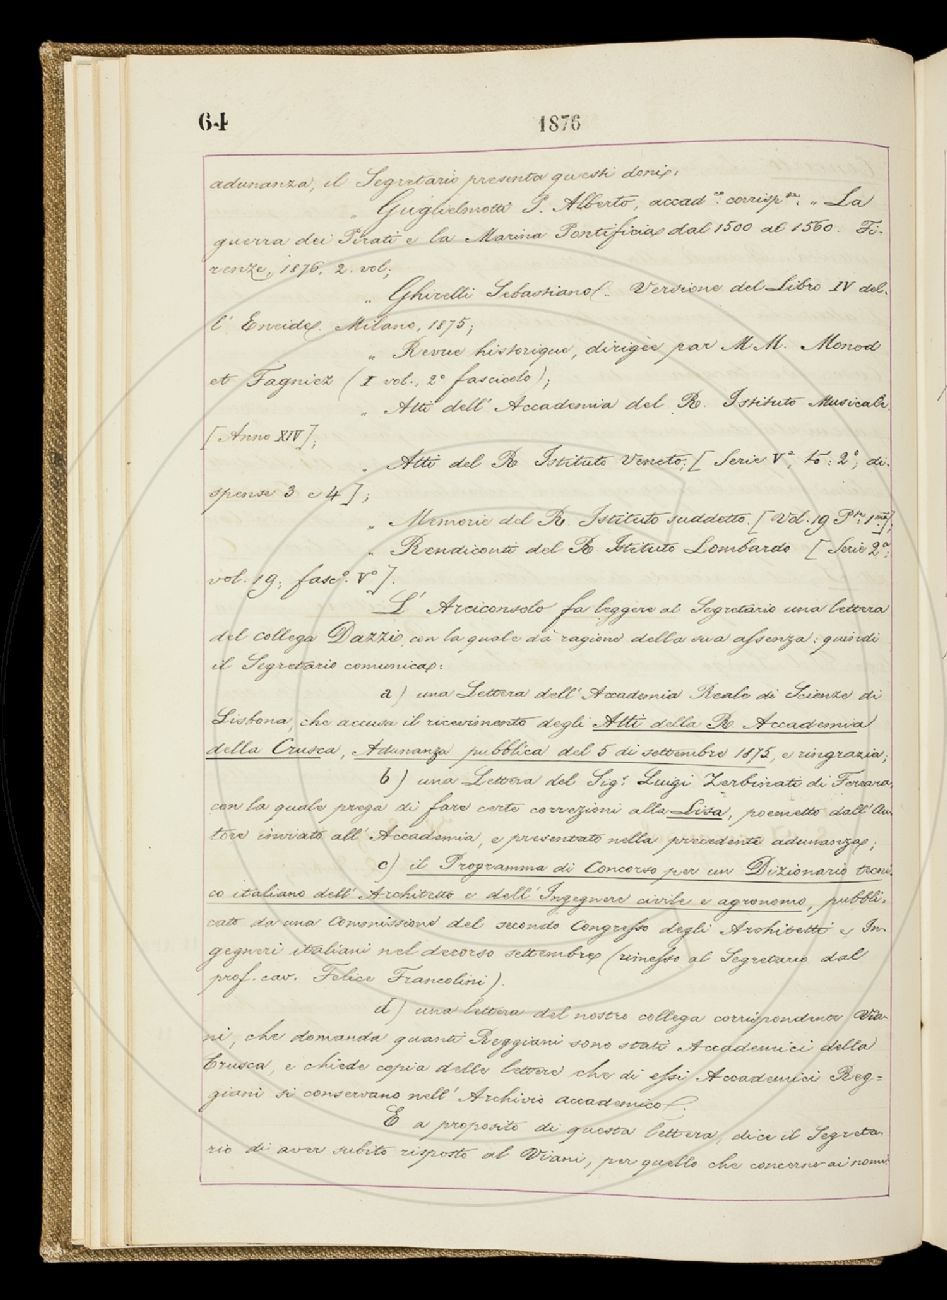 64
1876
adunanza, il Segretario presenta questi doni:
„ Guglielmotti P. Alberto, accad.co corrisp.te: „ La
guerra dei Pirati e la Marina Pontificia dal 1500 al 1560. Fi-
renze, 1876. 2. vol;
„ Ghivelli Sebastiano. Versione del Libro IV del-
l' Eneide. Milano, 1875;
„ Revue historique, dirigée par M M. Monod
et Fagniez (I vol., 2º fascicolo);
„ Atti dell' Accademia del R. Istituto Musicale
[Anno XIV];
„ Atti del R. Istituto Veneto; [Serie Vª, to: 2º, di-
spense 3 e 4];
„ Memorie del R. Istituto suddetto. [Vol. 19 P.te 1ma];
„ Rendiconti del R. Istituto Lombardo [Serie 2ª;
vol. 19; fascº. Vº].
L' Arciconsolo fa leggere al Segretario una lettera
del collega Dazzi, con la quale dà ragione della sua assenza: quindi
il Segretario comunica:
a) una Lettera dell' Accademia Reale di Scienze di
Lisbona, che accusa il ricevimento degli Atti della R. Accademia
della Crusca, Adunanza pubblica del 5 di settembre 1875, e ringrazia;
b) una Lettera del Sig.r Luigi Zerbinati di Ferrara,
con la quale prega di fare certe correzioni alla Lisa, poemetto dall' Au-
tore inviato all' Accademia, e presentato nella precedente adunanza;
c) il Programma di Concorso per un Dizionario tecni-
co italiano dell' Architetto e dell' Ingegnere civile e agronomo, pubbli-
cato da una Commissione del secondo Congresso degli Architetti e In-
gegneri italiani nel decorso settembre (rimesso al Segretario dal
prof. cav. Felice Francolini).
d) una lettera del nostro collega corrispondente Via-
ni, che domanda quanti Reggiani sono stati Accademici della
Crusca, e chiede copia delle lettere che di essi Accademici Reg-
giani si conservano nell' Archivio accademico.
E a proposito di questa lettera, dice il Segreta-
rio di aver subito risposto al Viani, per quello che concerne ai nomi